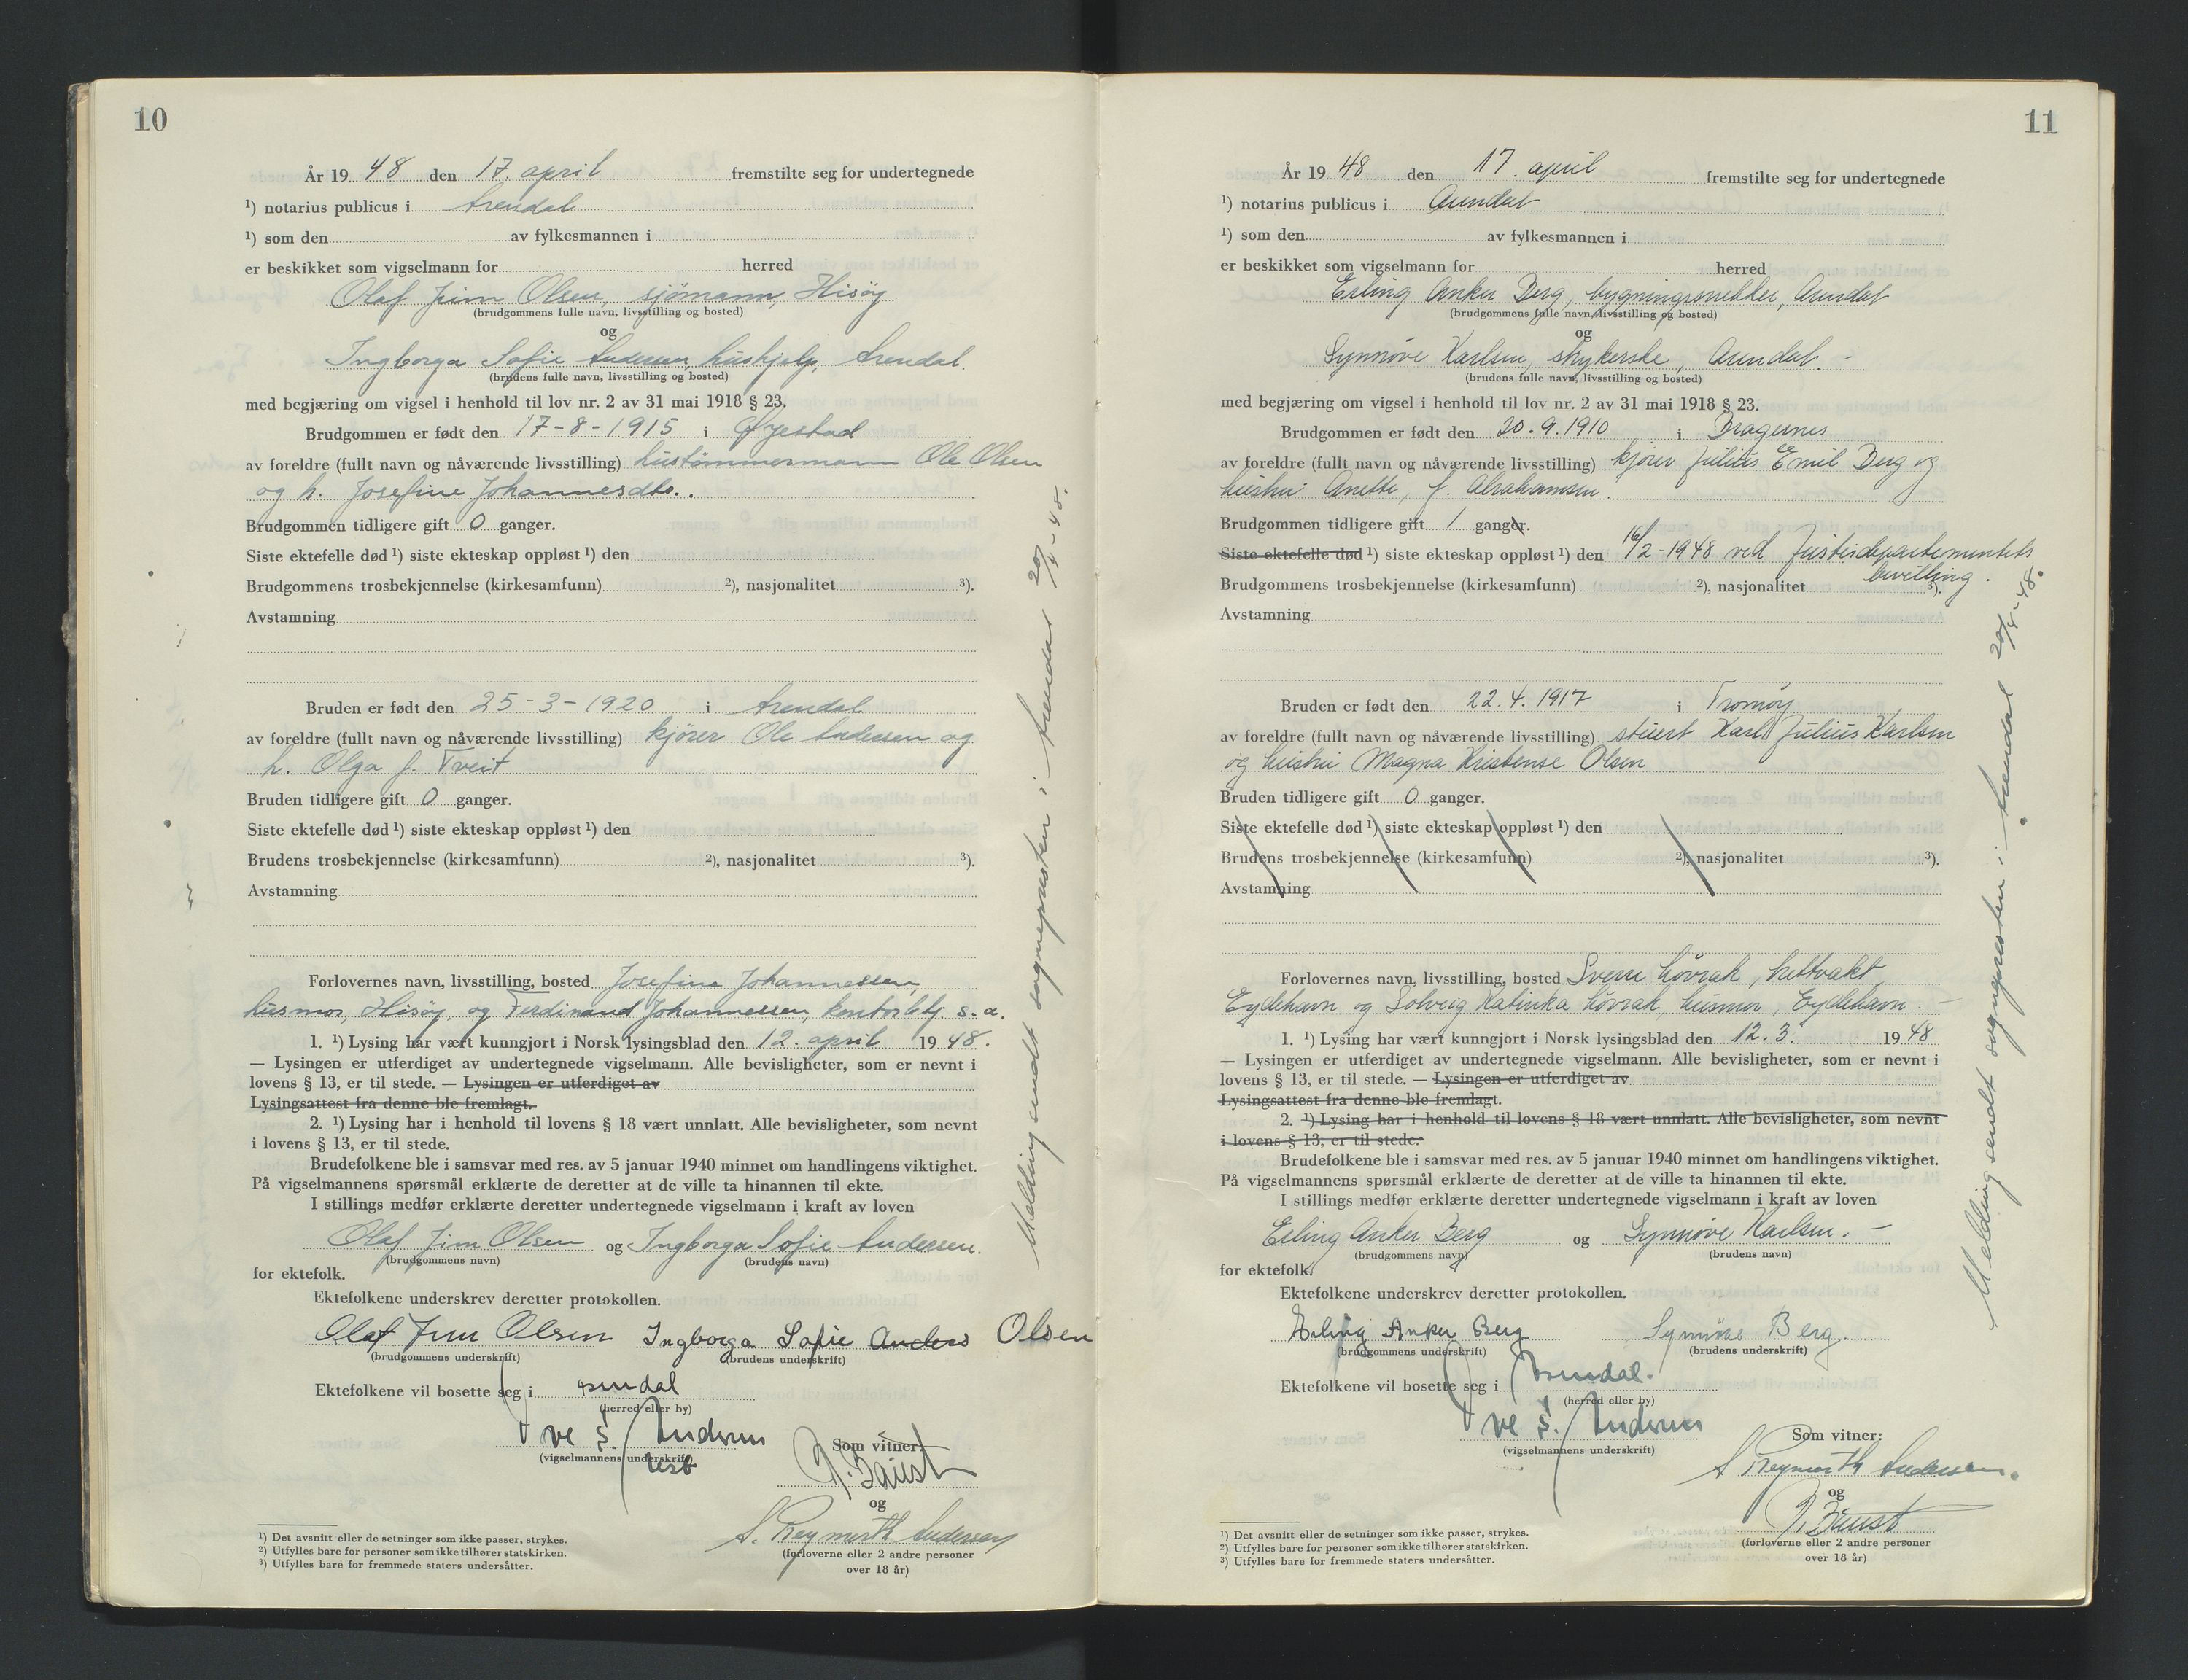 10
År 19 48 den 17. april fremstilte seg for undertegnede
¹) notarius publicus i Arendal
¹) som den av fylkesmannen i
er beskikket som vigselmann for herred
Olaf Jim Olsen, sjömann, Hisöy
(brudgommens fulle navn, livsstilling og bosted)
og
Ingborga Sofie Andersen, hushjelp, Arendal.
(brudens fulle navn, livsstilling og bosted)
med begjæring om vigsel i henhold til lov nr. 2 av 31 mai 1918 § 23.
Brudgommen er født den 17-8-1915 i Øyestad
av foreldre (fullt navn og nåværende livsstilling) hustömmermann Ole Olsen
og h. Josefine Johannesdtr.
Brudgommen tidligere gift 0 ganger.
Siste ektefelle død ¹) siste ekteskap oppløst ¹) den
Brudgommens trosbekjennelse (kirkesamfunn) ²), nasjonalitet ³).
Avstamning
Bruden er født den 25-3-1920 i Arendal
av foreldre (fullt navn og nåværende livsstilling) kjörer Ole Andersen og
h. Olga f. Tveit
Bruden tidligere gift 0 ganger.
Siste ektefelle død ¹) siste ekteskap oppløst ¹) den
Brudens trosbekjennelse (kirkesamfunn) ²), nasjonalitet ³).
Avstamning
Forlovernes navn, livsstilling, bosted Josefine Johannessen,
husmor, Hisöy, og Ferdinand Johannessen, kontorbetj. s.a.
1. ¹) Lysing har vært kunngjort i Norsk lysingsblad den 12. april 19 48.
— Lysingen er utferdiget av undertegnede vigselmann. Alle bevisligheter, som er nevnt i
lovens § 13, er til stede. — Lysingen er utferdiget av
Lysingsattest fra denne ble fremlagt.
2. ¹) Lysing har i henhold til lovens § 18 vært unnlatt. Alle bevisligheter, som nevnt
i lovens § 13, er til stede.
Brudefolkene ble i samsvar med res. av 5 januar 1940 minnet om handlingens viktighet.
På vigselmannens spørsmål erklærte de deretter at de ville ta hinannen til ekte.
I stillings medfør erklærte deretter undertegnede vigselmann i kraft av loven
Olaf Jim Olsen og Ingborga Sofie Andersen.
(brudgommens navn) (brudens navn)
for ektefolk.
Ektefolkene underskrev deretter protokollen.
Olaf Jim Olsen Ingborga Sofie Anders Olsen
(brudgommens underskrift) (brudens underskrift)
Ektefolkene vil bosette seg i Arendal
(herred eller by)
Ove S. Andersen
(vigselmannens underskrift)
Som vitner:
Baust
og
S. Reymerth Andersen
(forloverne eller 2 andre personer
over 18 år)
¹) Det avsnitt eller de setninger som ikke passer, strykes.
²) Utfylles bare for personer som ikke tilhører statskirken.
³) Utfylles bare for fremmede staters undersåtter.
Melding sendt sognepresten i Arendal 20/4-48.
11
År 19 48 den 17. april fremstilte seg for undertegnede
¹) notarius publicus i Arendal
¹) som den av fylkesmannen i
er beskikket som vigselmann for herred
Erling Anker Berg, bygningssnekker, Arendal
(brudgommens fulle navn, livsstilling og bosted)
og
Synnöve Karlsen, strykerske, Arendal. -
(brudens fulle navn, livsstilling og bosted)
med begjæring om vigsel i henhold til lov nr. 2 av 31 mai 1918 § 23.
Brudgommen er født den 20.9.1910 i Bragernes
av foreldre (fullt navn og nåværende livsstilling) kjörer Julius Emil Berg og
hustru Anette, f. Abrahamsen.
Brudgommen tidligere gift 1 ganger.
Siste ektefelle død ¹) siste ekteskap oppløst ¹) den 16/2-1948 ved Justisdepartementets
bevilling.
Brudgommens trosbekjennelse (kirkesamfunn) ²), nasjonalitet ³).
Avstamning
Bruden er født den 22.4.1917 i Tromøy
av foreldre (fullt navn og nåværende livsstilling) stuert Karl Julius Karlsen
og hustru Magna Kristense Olsen
Bruden tidligere gift 0 ganger.
Siste ektefelle død ¹) siste ekteskap oppløst ¹) den
Brudens trosbekjennelse (kirkesamfunn) ²), nasjonalitet ³).
Avstamning
Forlovernes navn, livsstilling, bosted Sverre Lövrak, nettvakt
Eydehavn og Solveig Katinka Lövrak, husmor, Eydehavn. -
1. ¹) Lysing har vært kunngjort i Norsk lysingsblad den 12.3. 19 48
— Lysingen er utferdiget av undertegnede vigselmann. Alle bevisligheter, som er nevnt i
lovens § 13, er til stede. — Lysingen er utferdiget av
Lysingsattest fra denne ble fremlagt.
2. ¹) Lysing har i henhold til lovens § 18 vært unnlatt. Alle bevisligheter, som nevnt
i lovens § 13, er til stede.
Brudefolkene ble i samsvar med res. av 5 januar 1940 minnet om handlingens viktighet.
På vigselmannens spørsmål erklærte de deretter at de ville ta hinannen til ekte.
I stillings medfør erklærte deretter undertegnede vigselmann i kraft av loven
Erling Anker Berg og Synnöve Karlsen. -
(brudgommens navn) (brudens navn)
for ektefolk.
Ektefolkene underskrev deretter protokollen.
Erling Anker Berg Synnöve Berg.
(brudgommens underskrift) (brudens underskrift)
Ektefolkene vil bosette seg i Arendal.
(herred eller by)
Ove S. Andersen
(vigselmannens underskrift)
Som vitner:
S. Reymerth Andersen.
og
Baust
(forloverne eller 2 andre personer
over 18 år)
¹) Det avsnitt eller de setninger som ikke passer, strykes.
²) Utfylles bare for personer som ikke tilhører statskirken.
³) Utfylles bare for fremmede staters undersåtter.
Melding sendt sognepresten i Arendal 20/4-48.